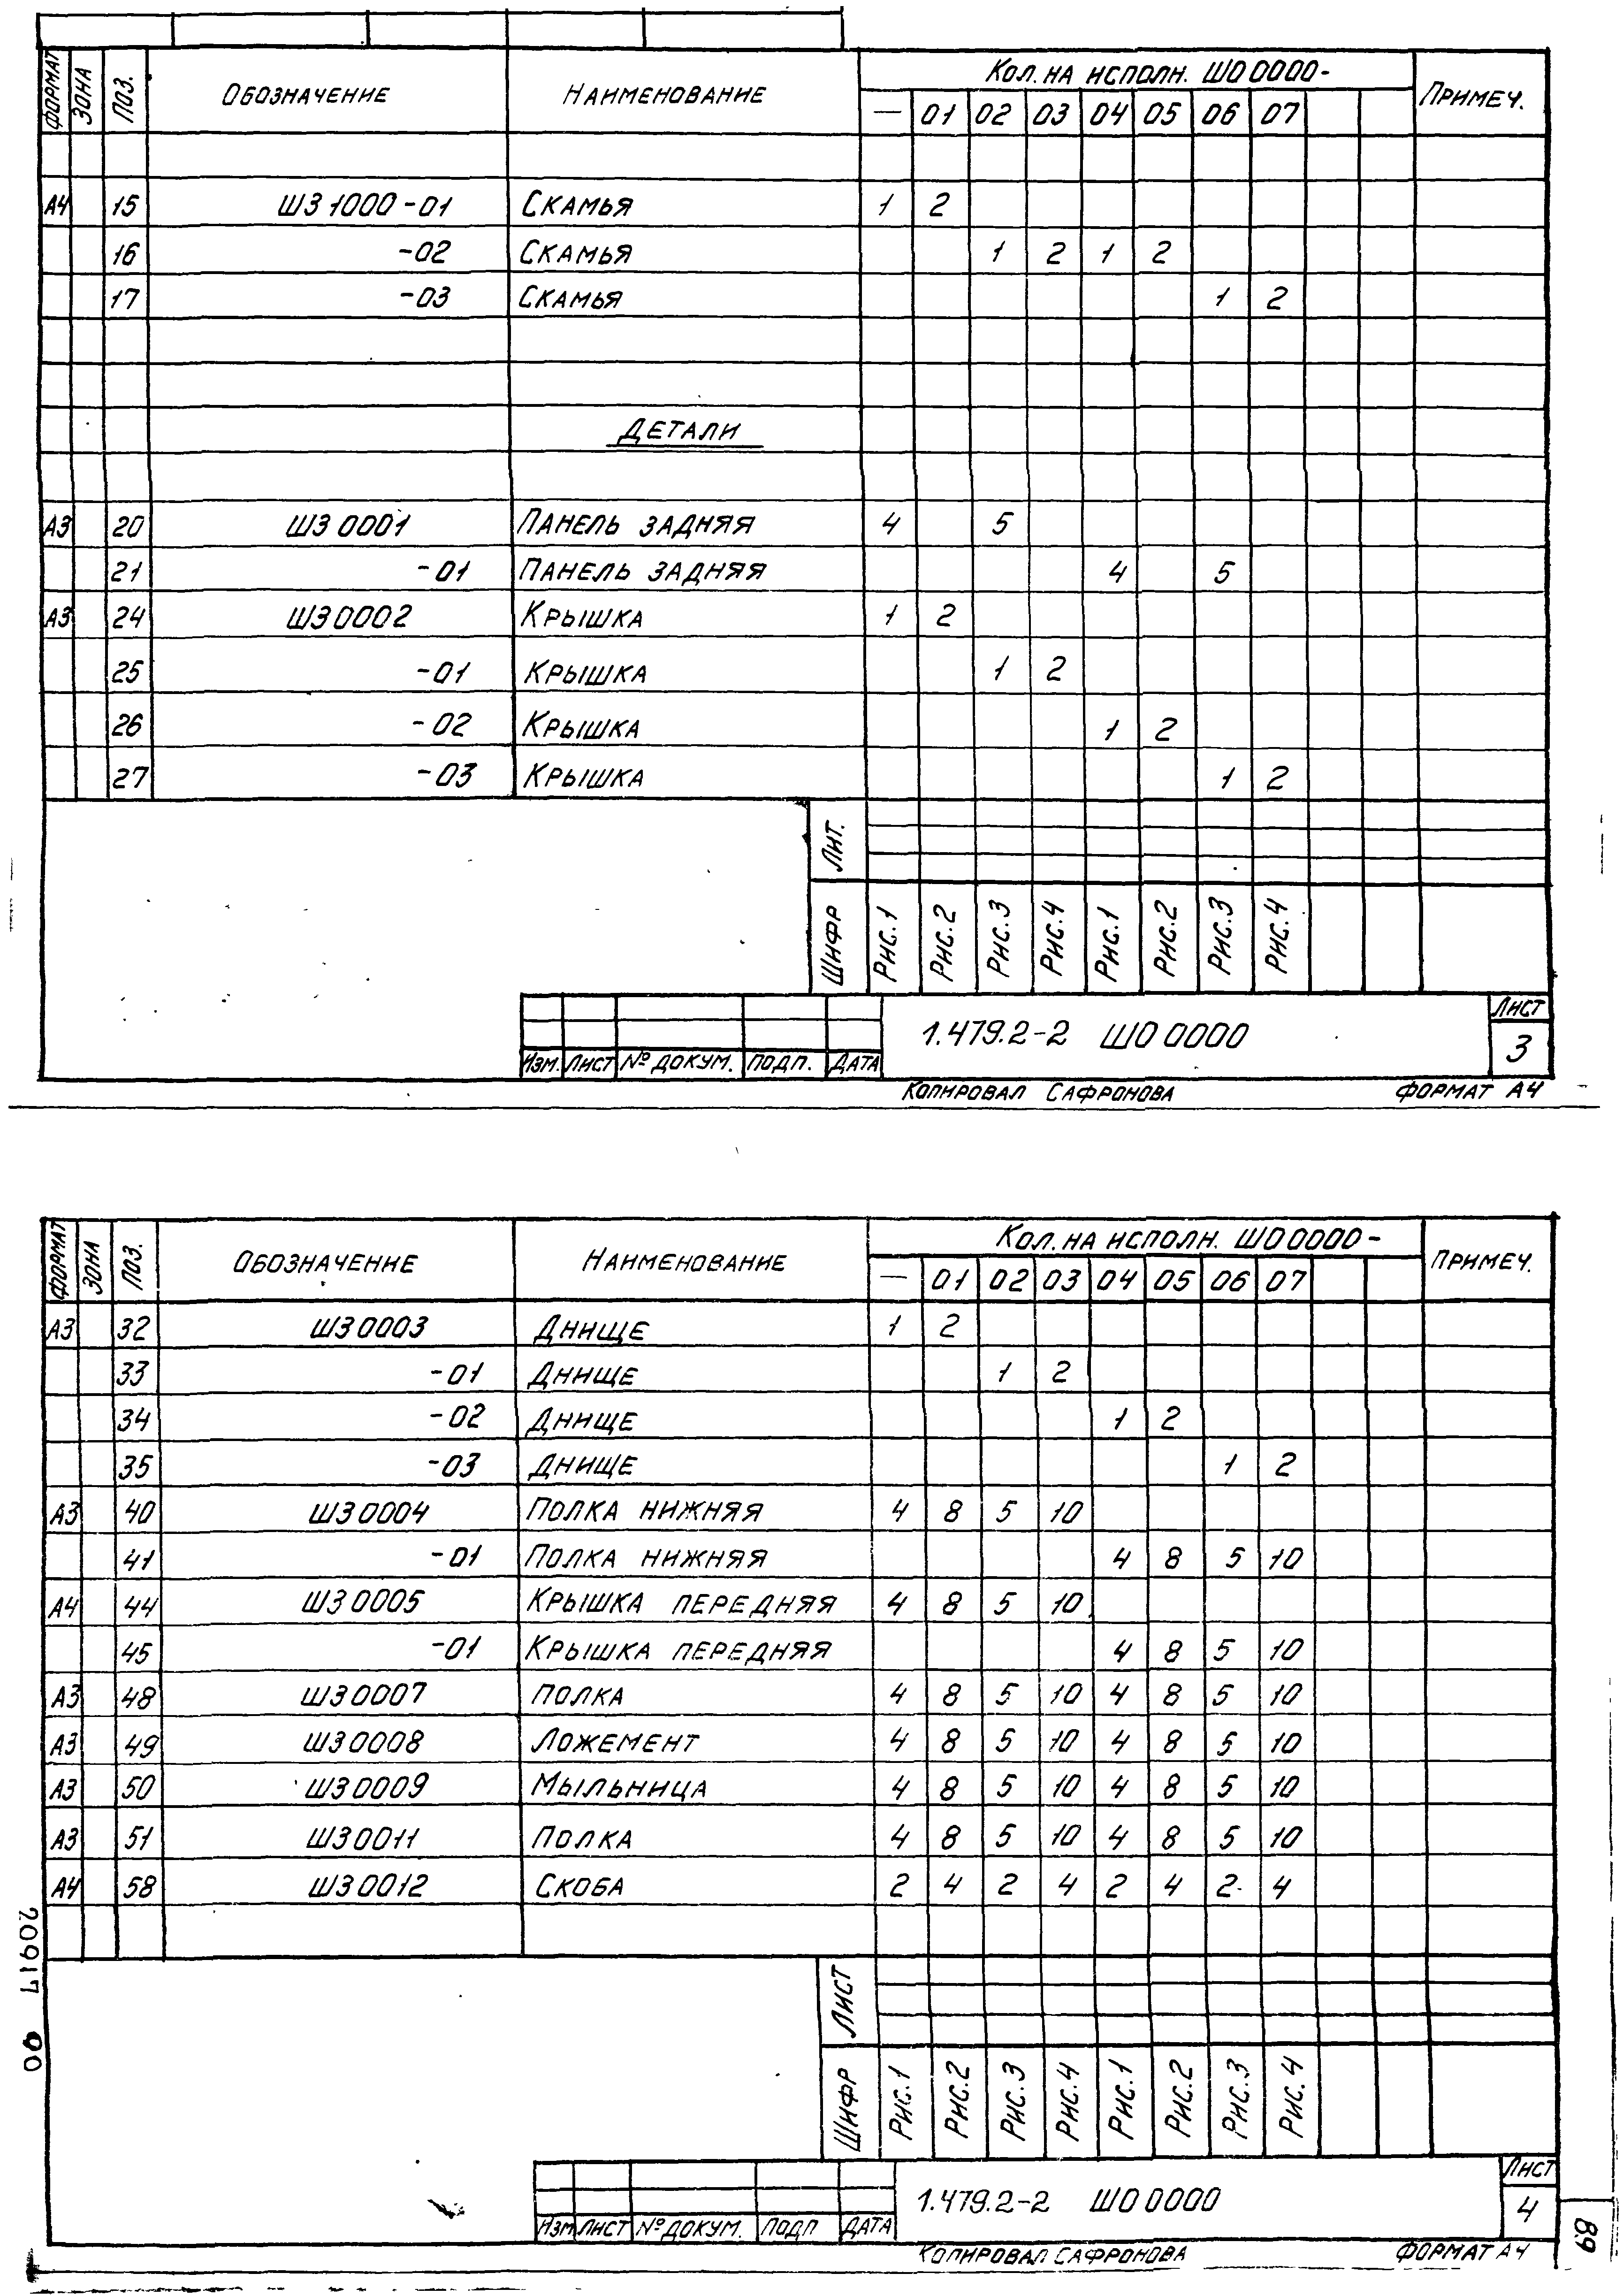 ФОРМАТ ЗОНА ПОЗ. ОБОЗНАЧЕНИЕ НАИМЕНОВАНИЕ КОЛ. НА ИСПОЛН. ШО 0000- ПРИМЕЧ.
— 01 02 03 04 05 06 07
А4 15 ШЗ 1000-01 СКАМЬЯ 1 2
16 -02 СКАМЬЯ 1 2 1 2
17 -03 СКАМЬЯ 1 2
ДЕТАЛИ
А3 20 ШЗ 0001 ПАНЕЛЬ ЗАДНЯЯ 4 5
21 -01 ПАНЕЛЬ ЗАДНЯЯ 4 5
А3 24 ШЗ 0002 КРЫШКА 1 2
25 -01 КРЫШКА 1 2
26 -02 КРЫШКА 1 2
27 -03 КРЫШКА 1 2
ЛИТ.
ШИФР РИС.1 РИС.2 РИС.3 РИС.4 РИС.1 РИС.2 РИС.3 РИС.4
1.479.2-2 ШО 0000 ЛИСТ
3
ИЗМ. ЛИСТ № ДОКУМ. ПОДП. ДАТА
КОПИРОВАЛ САФРОНОВА ФОРМАТ А4
ФОРМАТ ЗОНА ПОЗ. ОБОЗНАЧЕНИЕ НАИМЕНОВАНИЕ КОЛ. НА ИСПОЛН. ШО 0000- ПРИМЕЧ.
— 01 02 03 04 05 06 07
А3 32 ШЗ 0003 ДНИЩЕ 1 2
33 -01 ДНИЩЕ 1 2
34 -02 ДНИЩЕ 1 2
35 -03 ДНИЩЕ 1 2
А3 40 ШЗ 0004 ПОЛКА НИЖНЯЯ 4 8 5 10
41 -01 ПОЛКА НИЖНЯЯ 4 8 5 10
А4 44 ШЗ 0005 КРЫШКА ПЕРЕДНЯЯ 4 8 5 10
45 -01 КРЫШКА ПЕРЕДНЯЯ 4 8 5 10
А3 48 ШЗ 0007 ПОЛКА 4 8 5 10 4 8 5 10
А3 49 ШЗ 0008 ЛОЖЕМЕНТ 4 8 5 10 4 8 5 10
А3 50 ШЗ 0009 МЫЛЬНИЦА 4 8 5 10 4 8 5 10
А3 51 ШЗ 0011 ПОЛКА 4 8 5 10 4 8 5 10
А4 58 ШЗ 0012 СКОБА 2 4 2 4 2 4 2 4
ЛИСТ
ШИФР РИС.1 РИС.2 РИС.3 РИС.4 РИС.1 РИС.2 РИС.3 РИС.4
1.479.2-2 ШО 0000 ЛИСТ
4
ИЗМ ЛИСТ № ДОКУМ. ПОДП ДАТА
КОПИРОВАЛ САФРОНОВА ФОРМАТ А4
20917 90
89